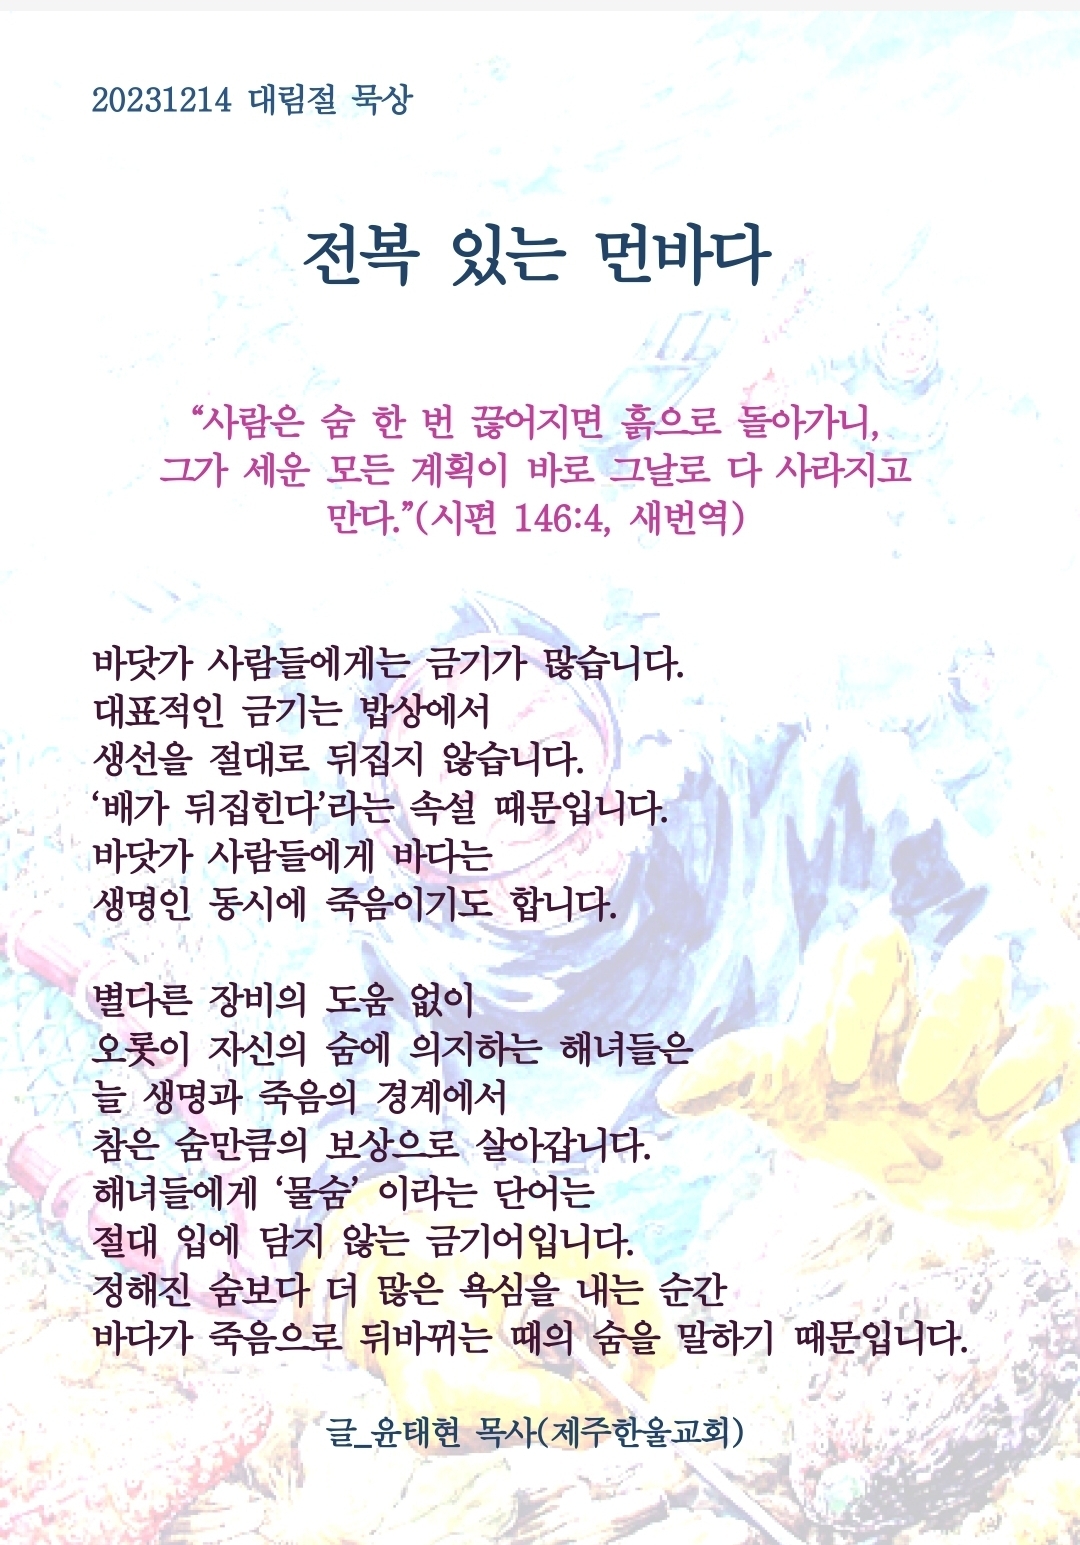 20231214 대림절 묵상
전복 있는 먼바다
“사람은 숨 한 번 끊어지면 흙으로 돌아가니,
그가 세운 모든 계획이 바로 그날로 다 사라지고
만다.”(시편 146:4, 새번역)
바닷가 사람들에게는 금기가 많습니다.
대표적인 금기는 밥상에서
생선을 절대로 뒤집지 않습니다.
‘배가 뒤집힌다’라는 속설 때문입니다.
바닷가 사람들에게 바다는
생명인 동시에 죽음이기도 합니다.
별다른 장비의 도움 없이
오롯이 자신의 숨에 의지하는 해녀들은
늘 생명과 죽음의 경계에서
참은 숨만큼의 보상으로 살아갑니다.
해녀들에게 ‘물숨’ 이라는 단어는
절대 입에 담지 않는 금기어입니다.
정해진 숨보다 더 많은 욕심을 내는 순간
바다가 죽음으로 뒤바뀌는 때의 숨을 말하기 때문입니다.
글_윤태현 목사(제주한울교회)